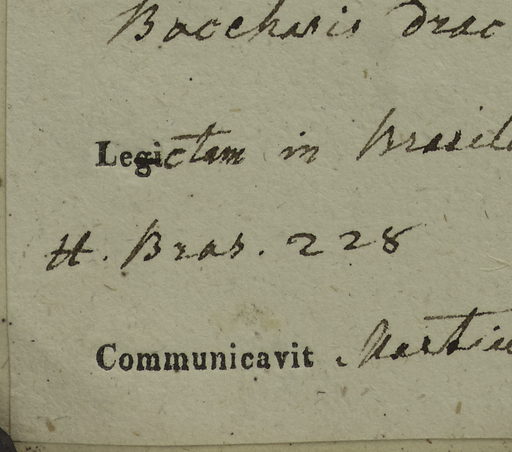 Baccharis drac
Legictam in Brasil
H. Bras. 228
Communicavit Martiu